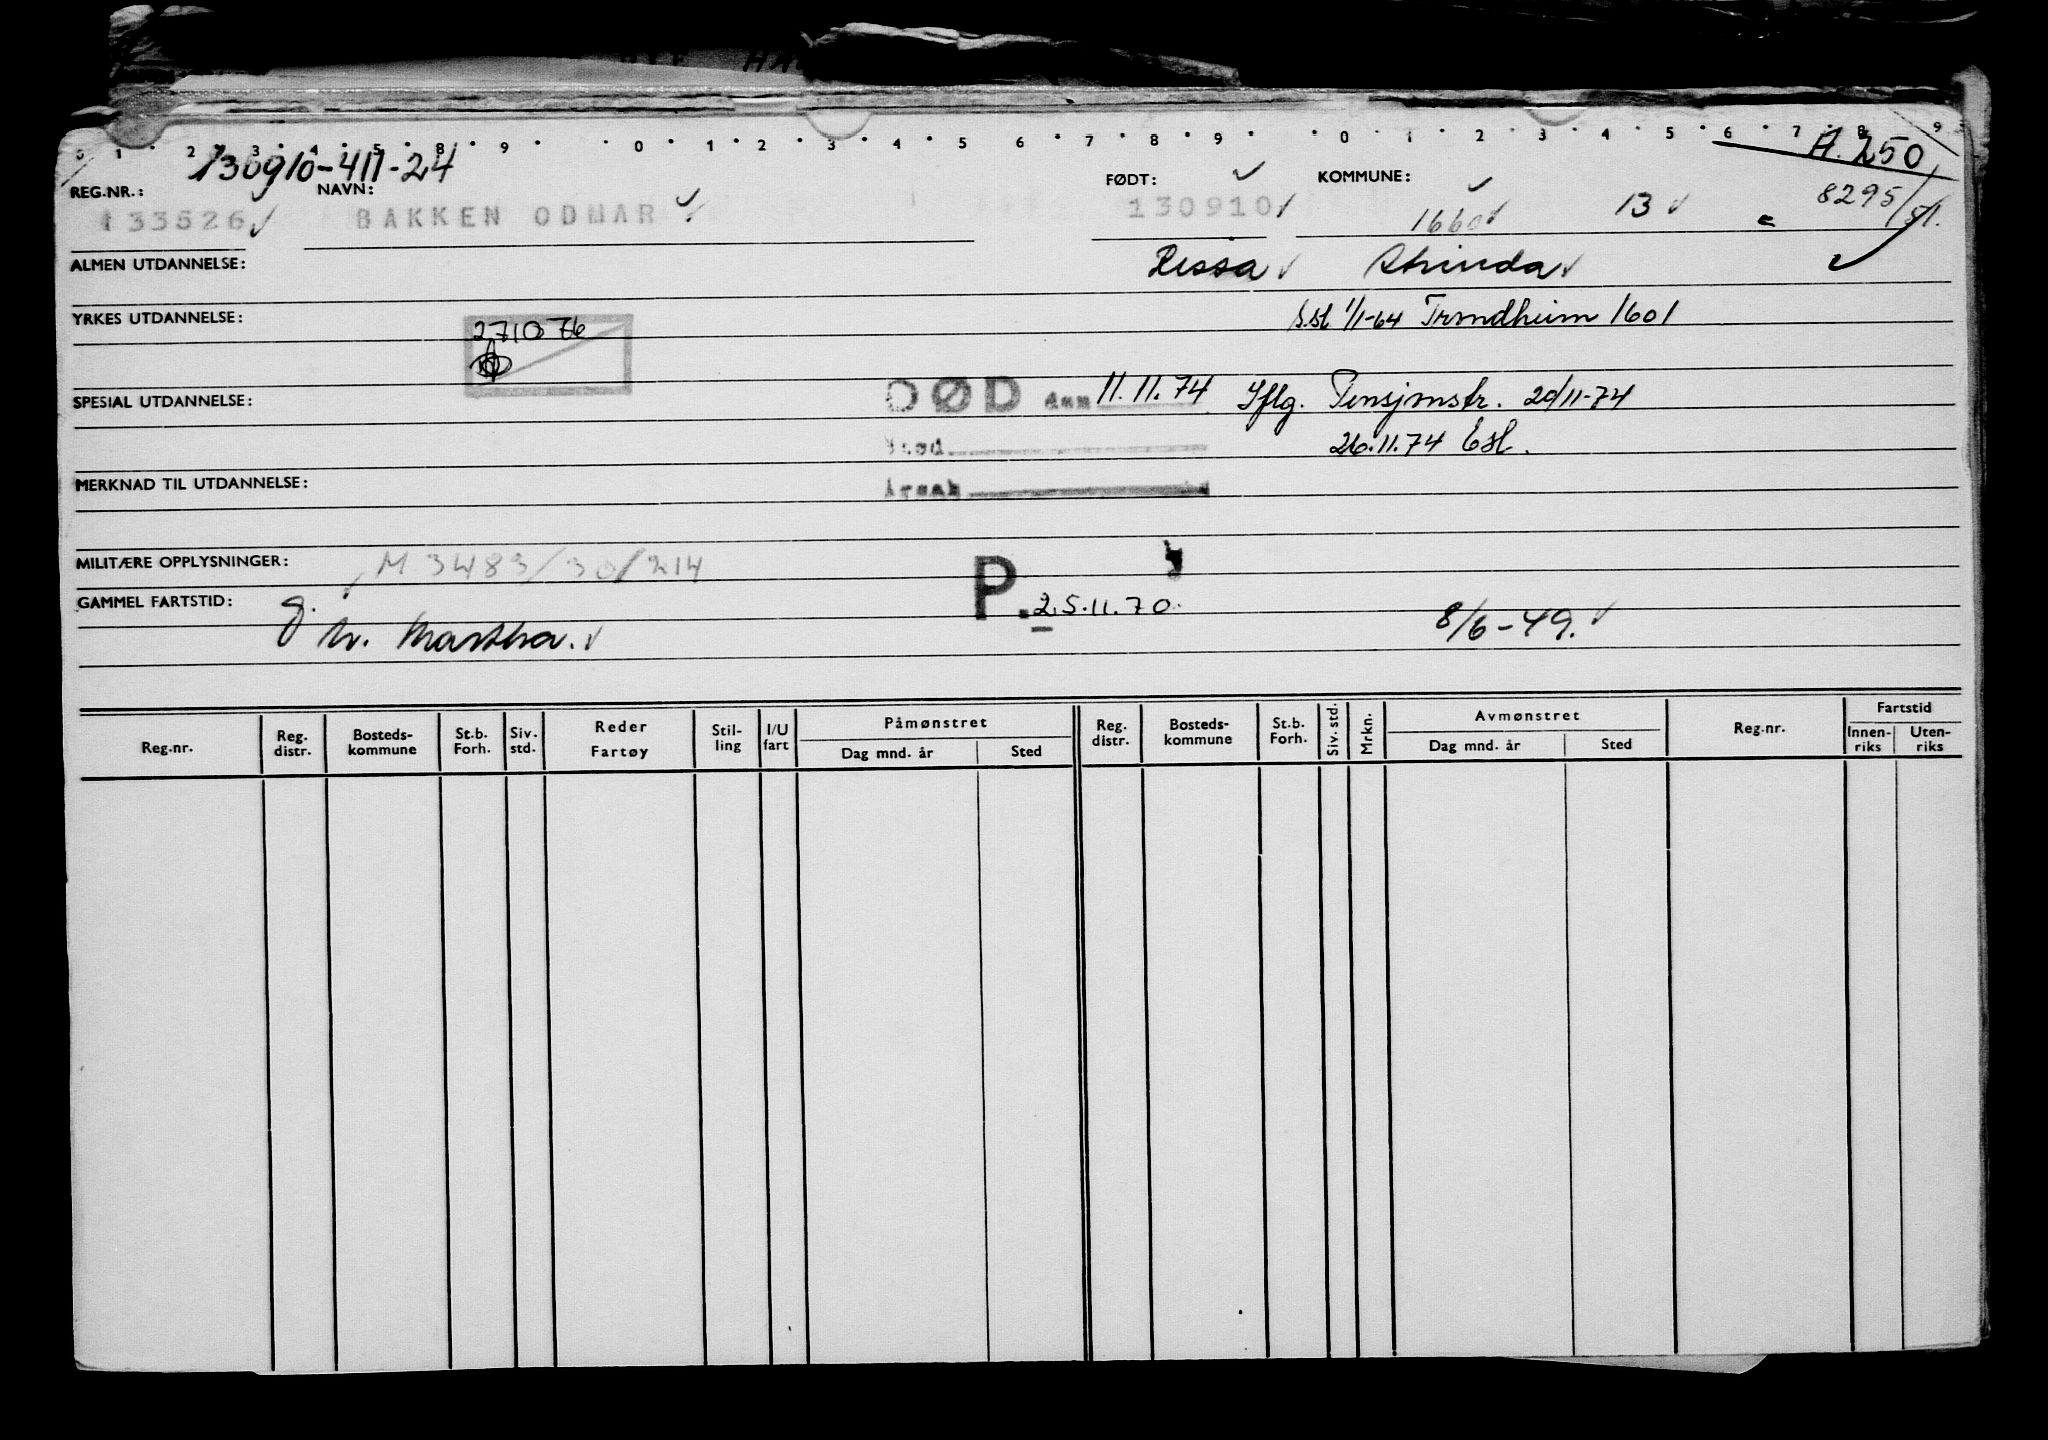 0 1 2 3 4 5 8 9 0 1 2 3 4 5 6 7 8 9 0 1 2 3 4 5 6 7 8 9
130910-411-24
A. 250
REG.NR.: NAVN: FØDT: KOMMUNE:
133526 BAKKEN ODMAR 130910 1660 13 8295/51.
ALMEN UTDANNELSE: Rissa Strinda
YRKES UTDANNELSE: S.st 1/1-64 Trondheim 1601
271076
SPESIAL UTDANNELSE: DØD den 11.11.74 Iflg. Pensjonstr. 20/11-74
Sted 26.11.74 Esl.
MERKNAD TIL UTDANNELSE: Årsak
MILITÆRE OPPLYSNINGER: M 3483/30/214
GAMMEL FARTSTID: P. 25.11.70 8/6-49.
g. m. Martha.
Reg.nr. Reg. distr. Bosteds- kommune St.b. Forh. Siv. std. Reder Fartøy Stil- ling I/U fart Påmønstret Dag mnd. år Sted Reg. distr. Bosteds- kommune St.b. Forh. Siv. std. Mrkn. Avmønstret Dag mnd. år Sted Reg.nr. Fartstid Innen- riks Uten- riks